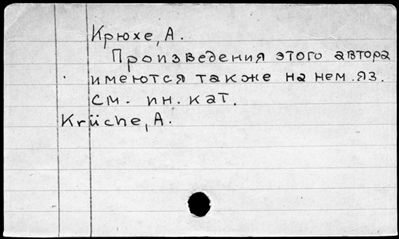 Крюхе, А.
Произведения этого автора
имеются также на нем. яз.
см. ин. кат.
Krüche, A.